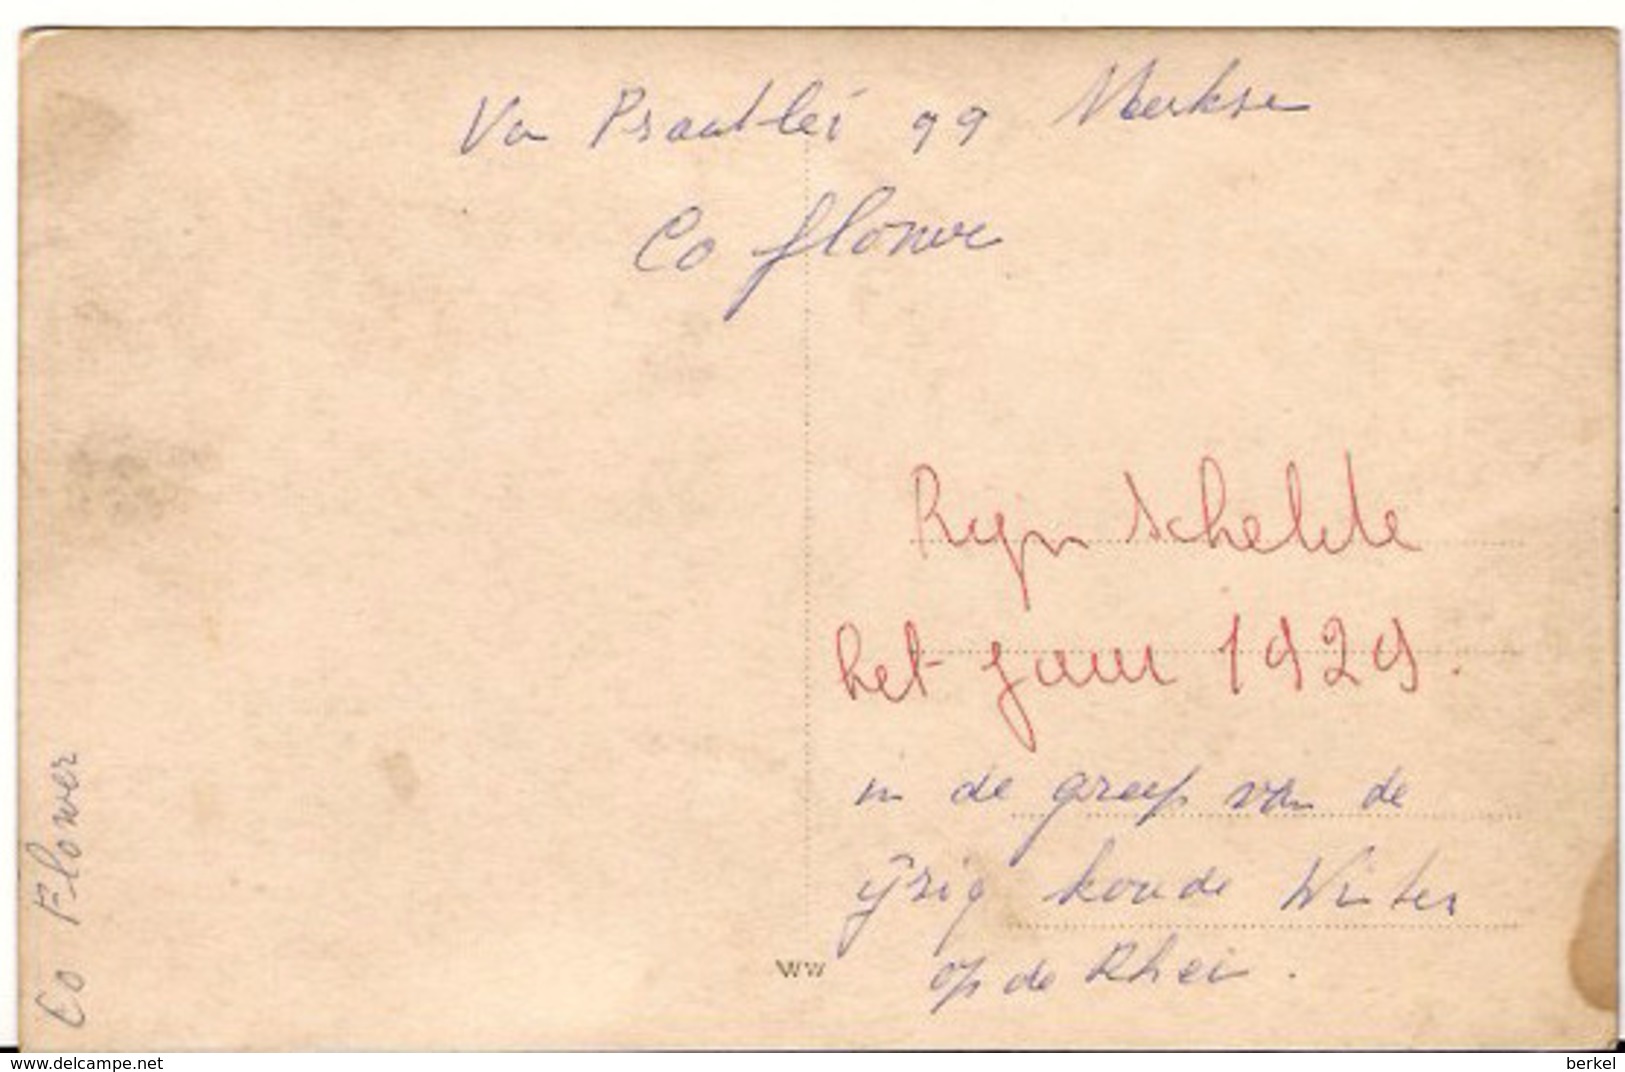 Van Praatlei 99 Merksem
Co Flower
Rijn Schelde
het jaar 1929.
in de greep van de
ijzig koude Winter
op de Rhein.
Co Flower
WW
www.delcampe.net
berkel